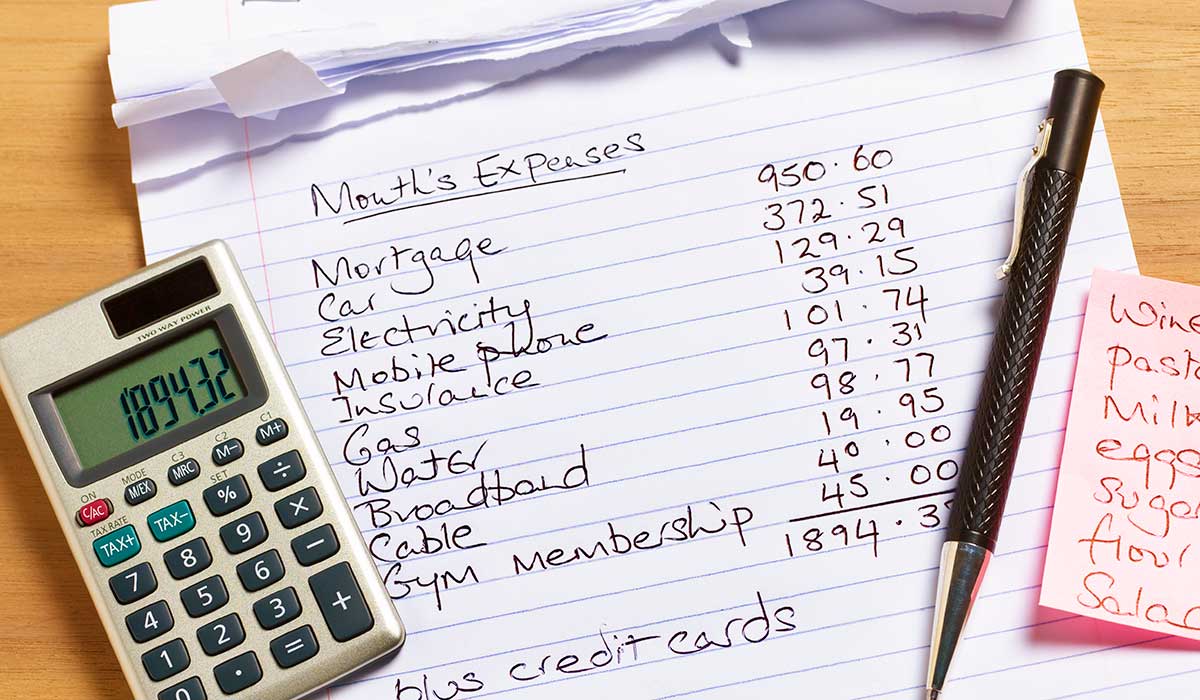 Month's Expenses
Mortgage 950.60
Car 372.51
Electricity 129.29
Mobile phone 39.15
Insurance 101.74
Gas 97.31
Water 98.77
Broadband 19.95
Cable 40.00
Gym membership 45.00
1894.3
plus credit cards
TWO WAY POWER
1894.32
C1
C2
C3
MODE
ON
M+
M-
MRC
M/EX
C/AC
SET
TAX RATE
÷
%
TAX-
TAX+
×
9
8
7
-
6
5
4
+
3
2
1
=
.
0
Wine
pasta
Milk
eggs
sugar
flour
Salad